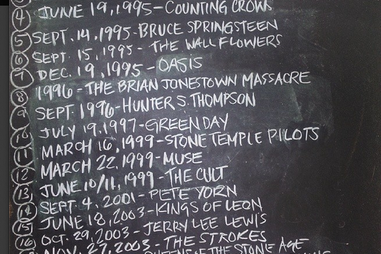 ④ JUNE 19, 1995 - COUNTING CROW
⑤ SEPT. 14, 1995 - BRUCE SPRINGSTEEN
⑥ SEPT. 15, 1995 - THE WALL FLOWERS
⑦ DEC. 19, 1995 - OASIS
⑧ 1996 - THE BRIAN JONESTOWN MASSACRE
⑨ SEPT. 1996 - HUNTER S. THOMPSON
⑩ JULY 19, 1997 - GREEN DAY
⑪ MARCH 16, 1999 - STONE TEMPLE PILOTS
⑫ MARCH 22, 1999 - MUSE
⑬ JUNE 10/11, 1999 - THE CULT
⑭ SEPT. 4, 2001 - PETE YORN
⑮ JUNE 18, 2003 - KINGS OF LEON
⑯ OCT. 29, 2003 - JERRY LEE LEWIS
NOV. 27, 2003 - THE STROKES
QUEENS OF THE STONE AGE